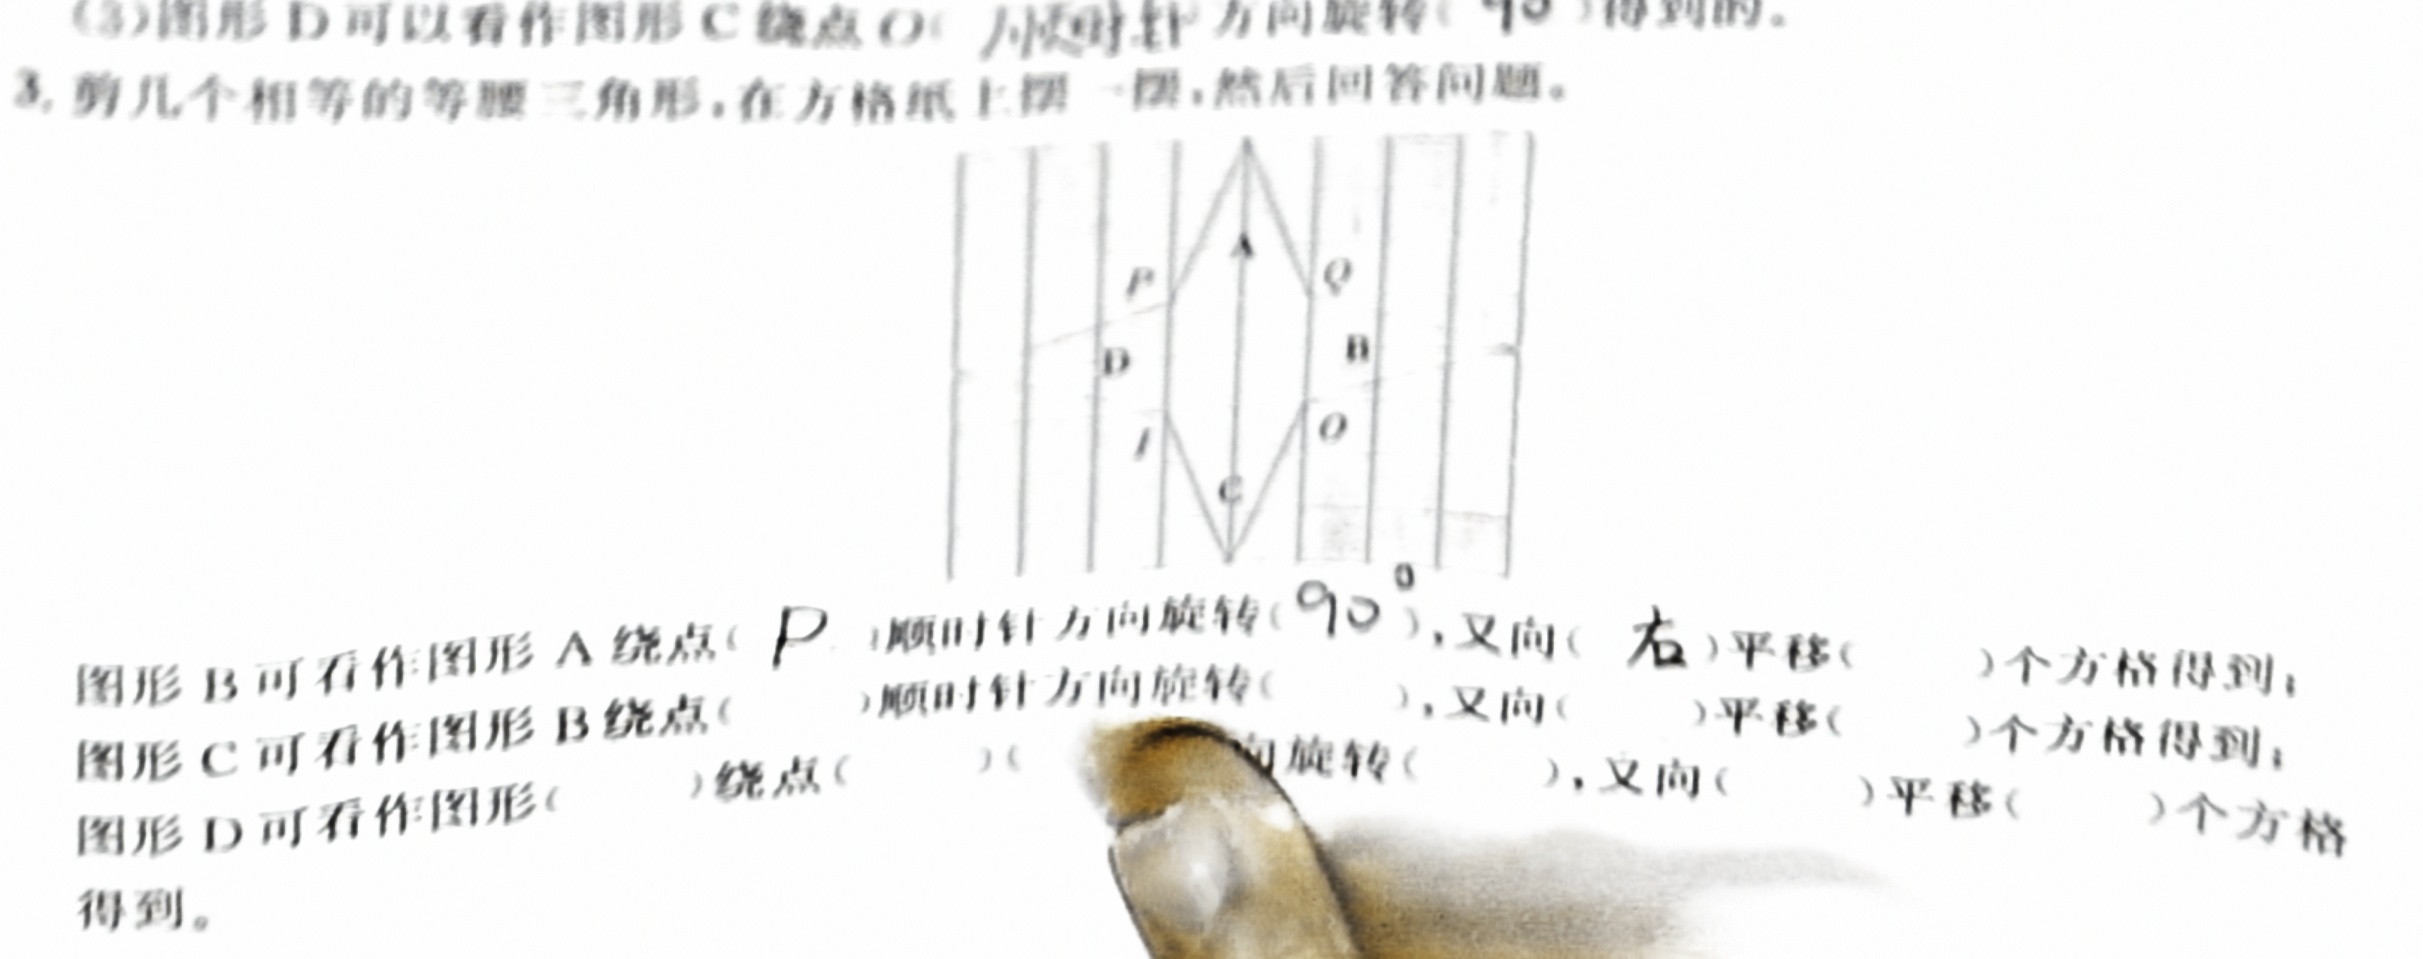 (3)图形 D 可以看作图形 C 绕点 O( 顺时针 方向旋转( 90 )得到的。
3. 剪几个相等的等腰三角形,在方格纸上摆一摆,然后回答问题。
A
P Q
D B
I O
C
图形 B 可看作图形 A 绕点( P )顺时针方向旋转( 90° ),又向( 右 )平移( )个方格得到;
图形 C 可看作图形 B 绕点( )顺时针方向旋转( ),又向( )平移( )个方格得到;
图形 D 可看作图形( )绕点( )( 向旋转( ),又向( )平移( )个方格
得到。